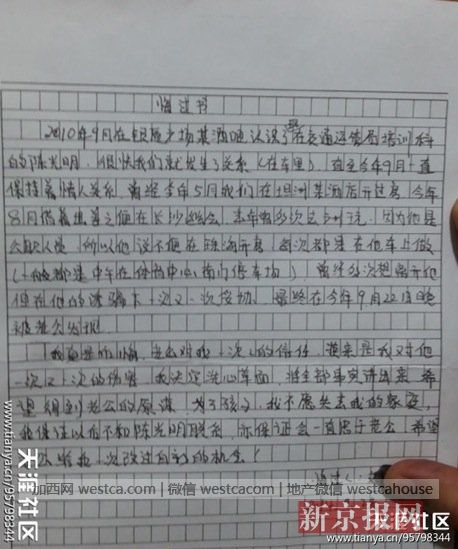 悔过书
2010年9月在银辰广场某酒吧认识了在交通运管局培训科
的陈光明,很快我们就发生了关系(在车里),直至今年9月一直
保持着情人关系,曾经去年5月我们在坦洲某酒店开过房,今年
8月借着出差之便在长沙幽会,去年曾多次去
公职人员,所以他说不便在珠海开房,每次都是在他车上做
(一般都是中午在体育中心南门停车场)曾经多次想离开他
但在他的哄骗下一次又一次妥协,最终在今年9月22日晚
被老公发现
我真是后悔,老公对我一次次的信任,换来是我对他
一次又一次的伤害,我决定洗心革面,将全部事实讲出来,希
望得到老公的原谅,为了孩子,我不愿失去我的家庭,
我保证以后不和陈光明联系,亦保证会一直忠于老公,希望
老公给我一次改过自新的机会!
加西网 westca.com | 微信 westcacom | 地产微信 westcahouse
新京报网
天涯社区
www.tianya.cn/95798344
天涯社区
www.tianya.cn/95798344